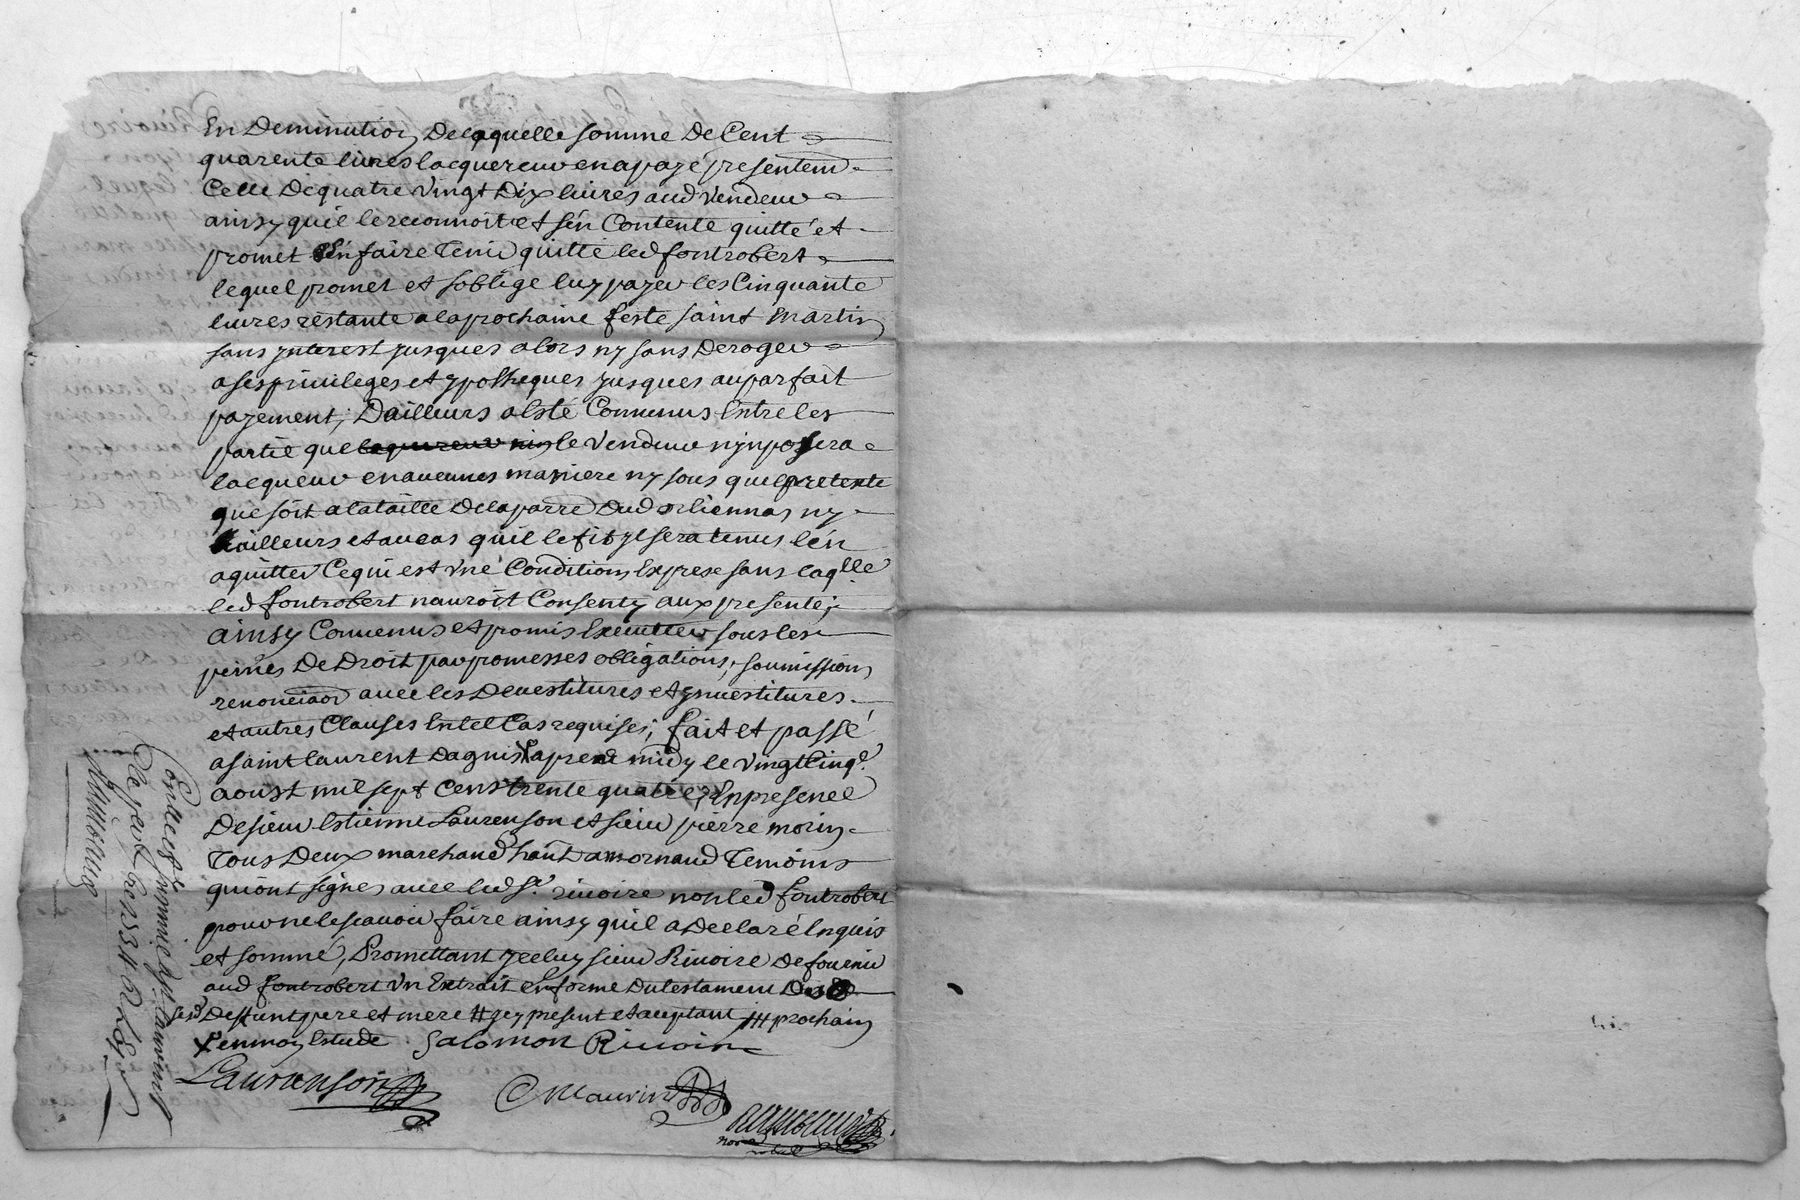 En Deminution Delaquelle somme De Cent
quarente livres lacquereur en a payé presentem
Celle De quatre vingt Dix livres aud vendeur
ainsy quil le reconnoit et sén Contente quitté et
promet én faire Tenir quitte led fontrobert
lequel promet et soblige luy payer les Cinquante
livres restante a la prochaine feste saint Martin
sans ynterest jusques alors ny sans Deroger
a ses privileges et ypotheques jusques au parfait
payement; D'ailleurs a Esté Convenus Entre les
partie que le vendeur n'ynposera
lacqueur en aucunes maniere ny sous quel pretexte
que soit a la taille De la parre Dud orliennas ny
ailleurs et au cas quil le fit yl sera tenus l'én
aquitter Ce qui est une Condition Expresse sans laqlle
led fontrobert n'auroit Consenty aux presente;
ainsy Convenus et promis Executter sous les
peines De Droit par promesses obligations, soumission,
renonciaon avec les Devestitures et ynvestitures
et autres Clauses En tel Cas requises; fait et passé
a saint laurent Dagnis apred midy le vingt Cinqe
aoust mil sept Cens trente quatre, En presence
De sieur Estienne Laurenson et sieur pierre morin
Tous Deux marchand hant a mornand Temoins
qui ont signes avec led Sr rivoire non led fontrobert
pour ne le scavoir faire ainsy quil a Declaré Enquis
et sommé, Promettant yceluy sieur Rivoire De fournir
aud fontrobert un Extrait En forme Du testament De
Deffunt pere et mere # yey present et aceptant ### prochain
X en mon Estude Salomon Rivoire
Lauranson
Maurin